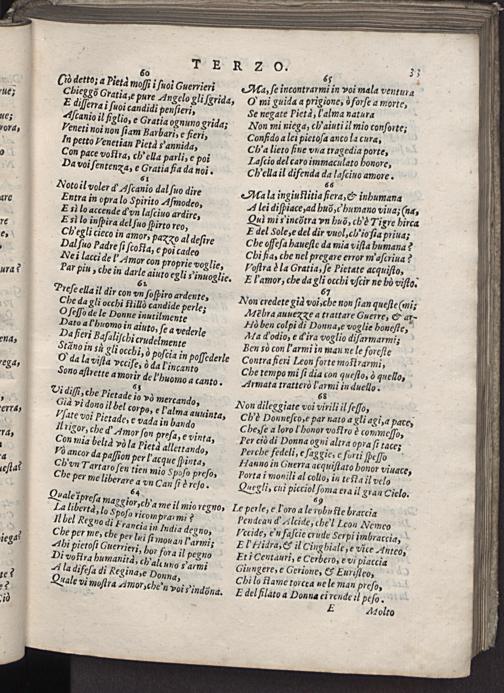 TERZO. 33
60
Ciò detto; a Pietà mossi i suoi Guerrieri
Chieggō Gratia, e pure Angelo gli sgrida,
E disserra i suoi candidi pensieri,
Ascanio il figlio, e Gratia ognuno grida;
Veneti noi non siam Barbari, e fieri,
In petto Venetian Pietà s'annida,
Con pace vostra, ch'ella parli, e poi
Da voi sentenza, e Gratia fia da noi.
61
Noto il voler d'Ascanio dal suo dire
Entra in opra lo Spirito Asmodeo,
E sì lo accende d'vn lasciuo ardire,
E sì lo inspira del suo spirto reo,
Ch'egli cieco in amor, pazzo al desire
Dal suo Padre si scosta, e poi cadeo
Ne i lacci de l'Amor con proprie voglie,
Par piu, che in darle aiuto egli s'inuoglie.
62
Prese ella il dir con vn sospiro ardente,
Che da gli occhi stillò candide perle;
O sesso de le Donne inutilmente
Dato a l'huomo in aiuto, se a vederle
Da fieri Basalischi crudelmente
Stāno in sù gli occhi, ò poscia in possederle
O' da la vista vccise, ò da l'incanto
Sono astrette a morir de l'huomo a canto.
63
Vi dissi, che Pietade io vò mercando,
Già vi dono il bel corpo, e l'alma auuinta,
Vsate voi Pietade, e vada in bando
Il rigor, che d'Amor son presa, e vinta,
Con mia beltà vò la Pietà allettando,
Vò ancor da passion per l'acque spinta,
Ch'vn Tartaro sen tien mio Sposo preso,
Che per me liberare a vn Can si è reso.
64
Quale īpresa maggior, ch'a me il mio regno,
La libertà, lo Sposo ricomprarmi?
Il bel Regno di Francia in India degno,
Che per me, che per lui si mouan l'armi;
Ahi pietosi Guerrieri, hor fora il pegno
Di vostra humanità, ch'alcuno s'armi
A la difesa di Regina, e Donna,
Quale vi mostra Amor, che'n voi s'indōna.
65
Ma, se incontrarmi in voi mala ventura
O' mi guida a prigione, ò forse a morte,
Se negate Pietà, l'alma natura
Non mi niega, ch'aiuti il mio consorte;
Confido a lei pietosa anco la cura,
Ch'a lieto fine vna tragedia porte,
Lascio del caro immaculato honore,
Ch'ella il difenda da lasciuo amore.
66
Ma la ingiustitia fiera, & inhumana
A lei dispiace, ad huō, c'humano viua; (na,
Quì mi s'incōtra vn huō, ch'è Tigre hirca
E del Sole, e del dir vuol, ch'io sia priua;
Che offesa haueste da mia vista humana?
Chi fia, che nel pregare error m'ascriua?
Vostra è la Gratia, se Pietate acquisto,
E l'amor, che da gli occhi vscir ne hò visto.
67
Non credete già voi, che non sian queste (mi;
Mēbra auuezze a trattare Guerre, & ar-
Hò ben colpi di Donna, e voglie honeste,
Ma d'odio, e d'ira voglio disarmarmi;
Ben sò con l'armi in man ne le foreste
Contra fieri Leon forte mostrarmi,
Che tempo mi si dia con questo, ò quello,
Armata tratterò l'armi in duello.
68
Non dileggiate voi virili il sesso,
Ch'è Donnesco, e par nato a gli agi, a pace,
Che, se a loro l'honor vostro è commesso,
Per ciò di Donna ogni altra opra si tace;
Perche fedeli, e saggie, e forti spesso
Hanno in Guerra acquistato honor viuace,
Porta i monili al collo, in testa il velo
Quegli, cui picciol soma era il gran Cielo.
69
Le perle, e l'oro a le robuste braccia
Pendean d'Alcide, che'l Leon Nemeo
Vccide, e'n fascie crude Serpi imbraccia,
E l'Hidra, & il Cinghiale, e vice Anteo,
Et i Centauri, e Cerbero, e vi piaccia
Giungere, e Gerione, & Euristeo,
Chi lo stame torcea ne le man preso,
E del filato a Donna ei rende il peso.
E Molto